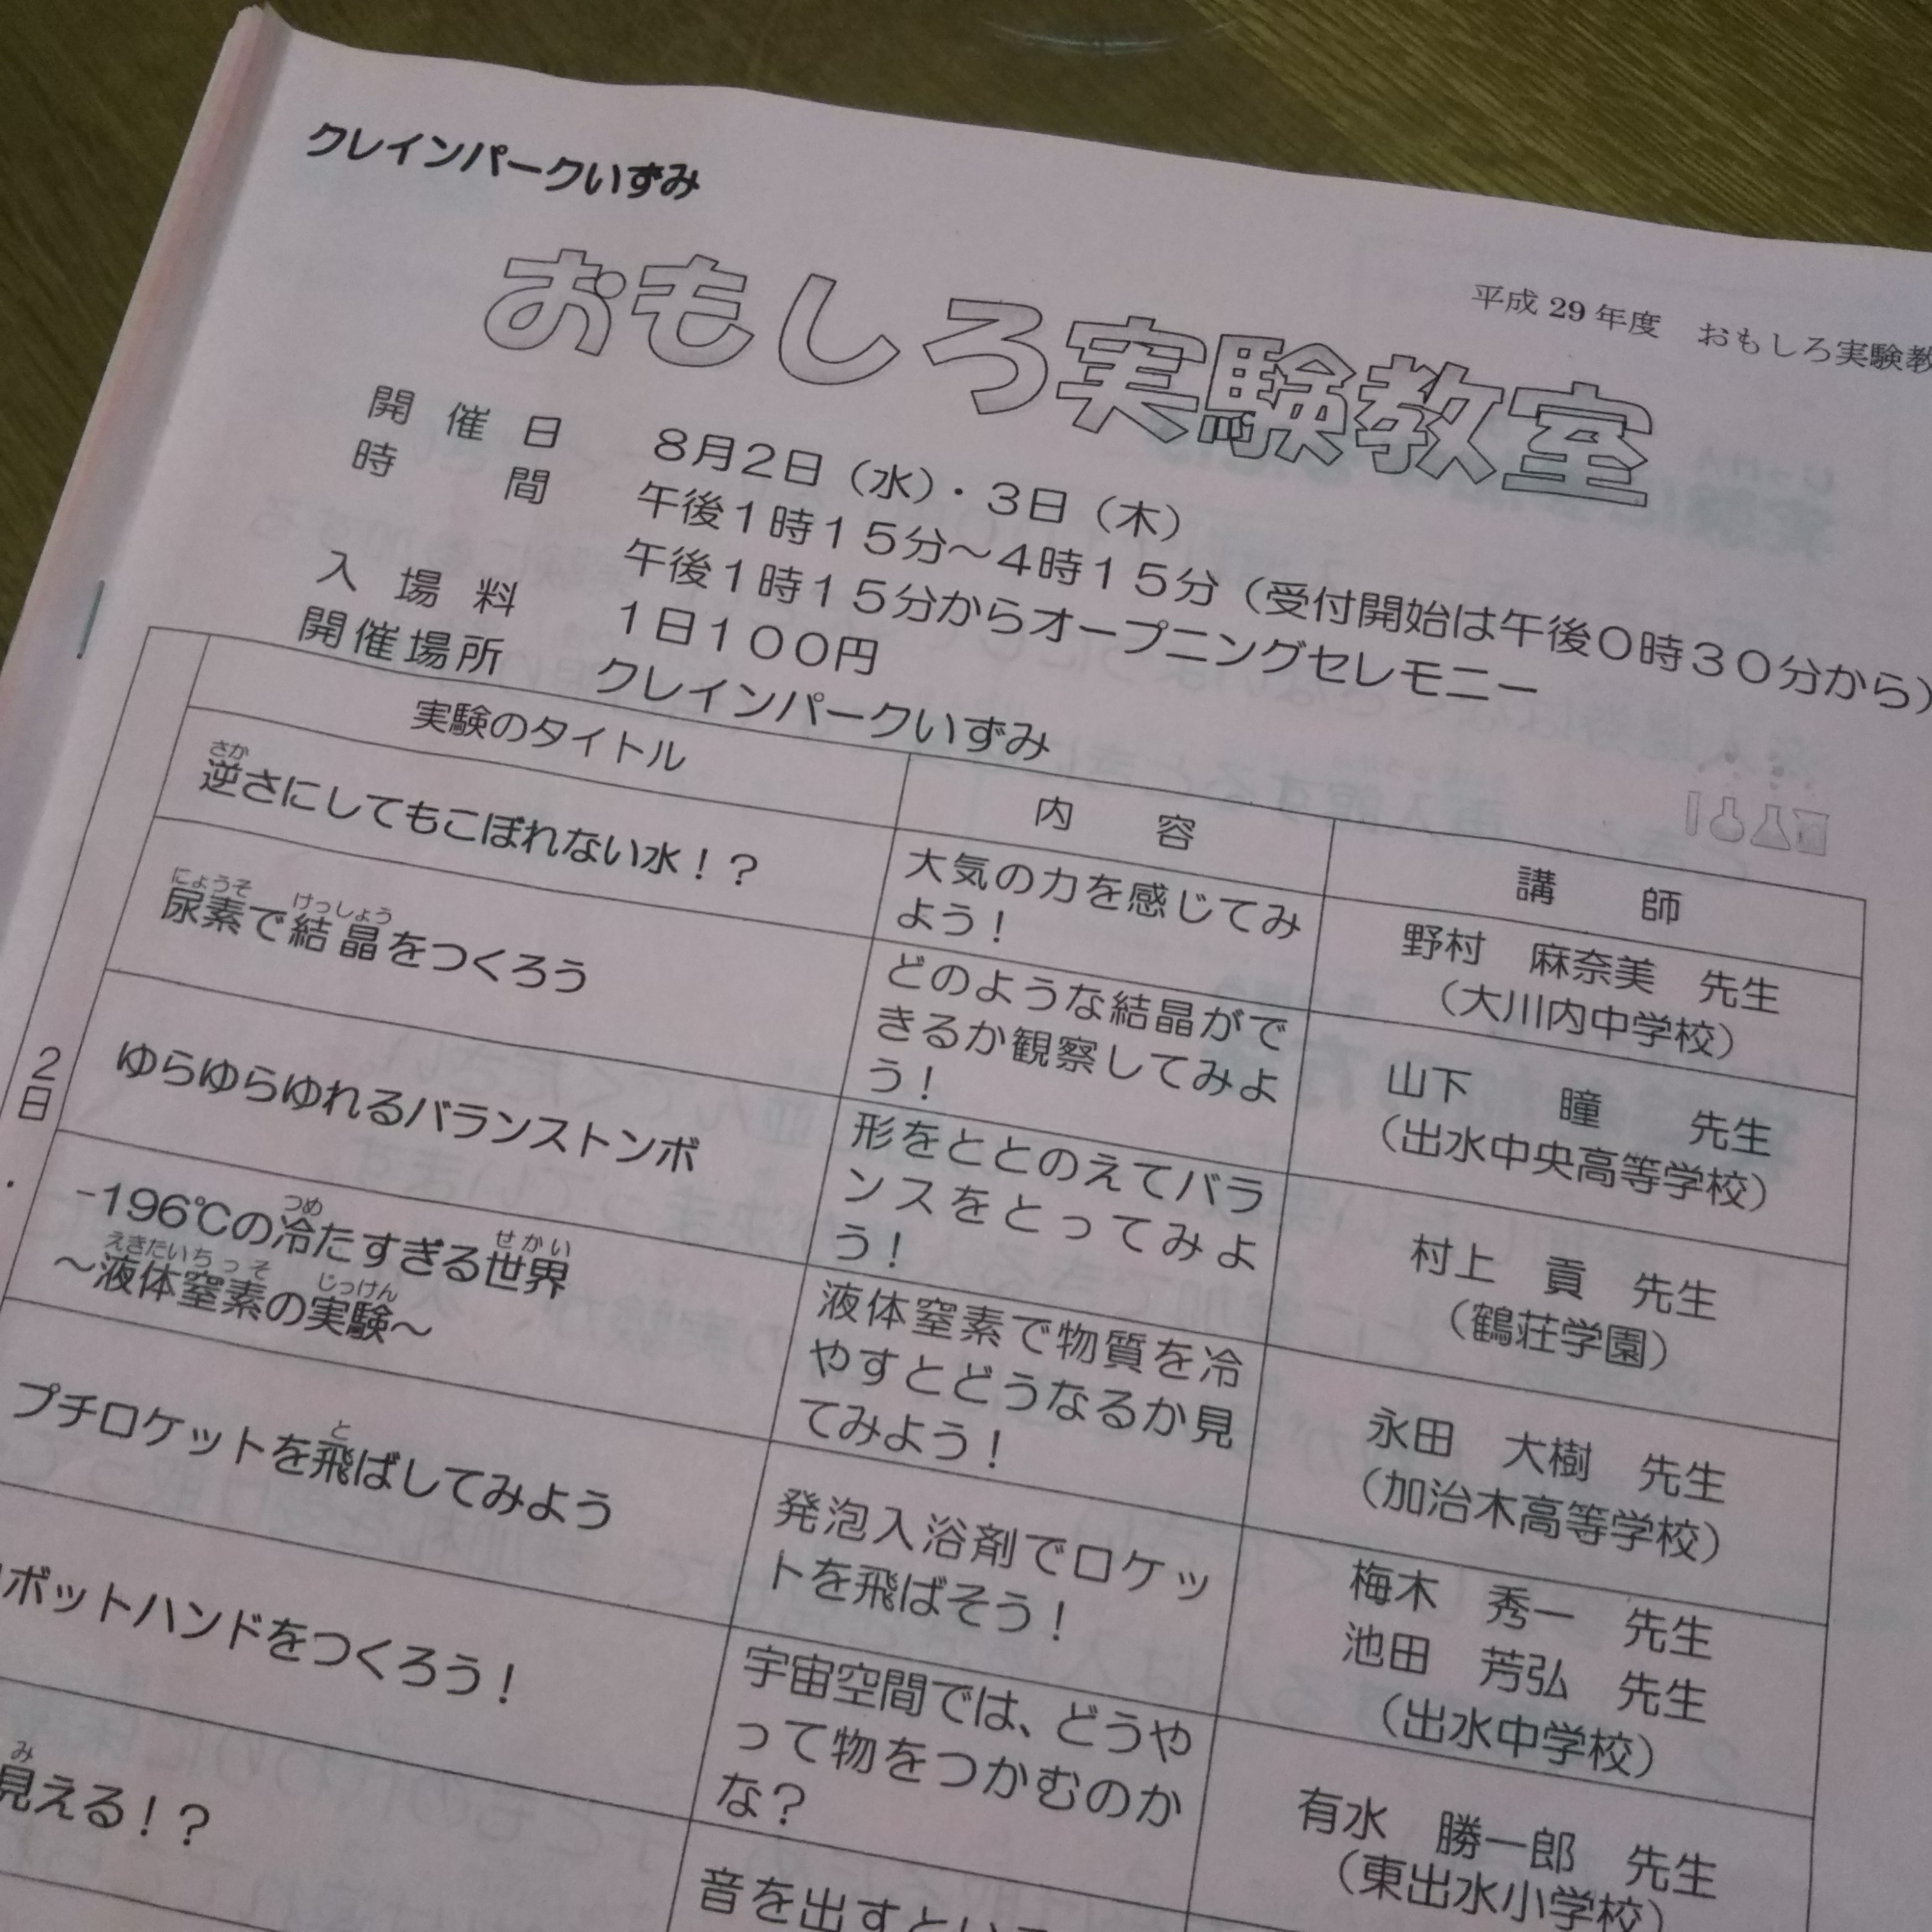 クレインパークいずみ
平成 29 年度　おもしろ実験教
おもしろ実験教室
開催日　８月２日（水）・３日（木）
時間　午後１時１５分～４時１５分（受付開始は午後０時３０分から）
午後１時１５分からオープニングセレモニー
入場料　１日１００円
開催場所　クレインパークいずみ
実験のタイトル
内容
講師
２日
さか
逆さにしてもこぼれない水！？
大気の力を感じてみ
よう！
野村　麻奈美　先生
（大川内中学校）
にょうそ　けっしょう
尿素で結晶をつくろう
どのような結晶がで
きるか観察してみよ
う！
山下　瞳　先生
（出水中央高等学校）
ゆらゆらゆれるバランストンボ
形をととのえてバラ
ンスをとってみよ
う！
村上　貢　先生
（鶴荘学園）
つめ　せかい
-196℃の冷たすぎる世界
えきたいちっそ　じっけん
～液体窒素の実験～
液体窒素で物質を冷
やすとどうなるか見
てみよう！
永田　大樹　先生
（加治木高等学校）
と
プチロケットを飛ばしてみよう
発泡入浴剤でロケッ
トを飛ばそう！
梅木　秀一　先生
池田　芳弘　先生
（出水中学校）
ボットハンドをつくろう！
宇宙空間では、どうや
って物をつかむのか
な？
有水　勝一郎　先生
（東出水小学校）
み
見える！？
音を出すという